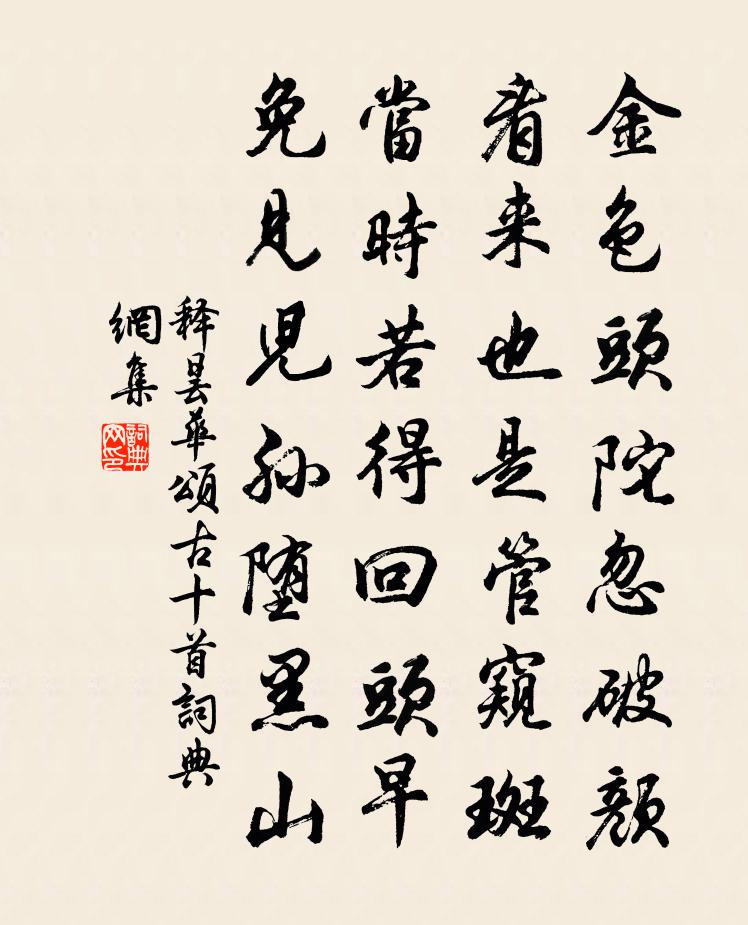 金色頭陀忽破顏
看来也是管窺斑
當時若得回頭早
免見児孫堕黑山
释曇華頌古十首詞典
網集
詞典
网印